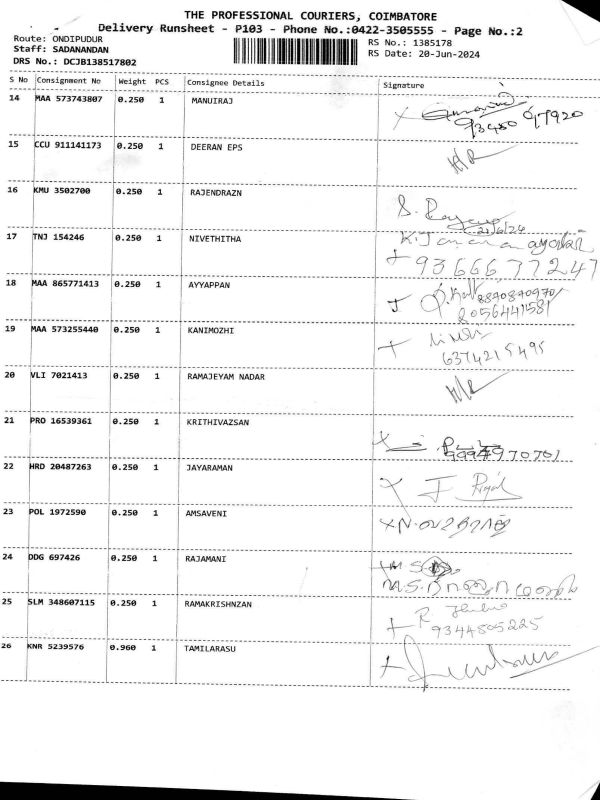 THE PROFESSIONAL COURIERS, COIMBATORE
Delivery Runsheet - P103 - Phone No.:0422-3505555 - Page No.:2
Route: ONDIPUDUR
RS No.: 1385178
Staff: SADANANDAN
RS Date: 20-Jun-2024
DRS No.: DCJB138517802
S No Consignment No Weight PCS Consignee Details Signature
14 MAA 573743807 0.250 1 MANUIRAJ
15 CCU 911141173 0.250 1 DEERAN EPS H/R
16 KMU 3502700 0.250 1 RAJENDRAZN S.
21/6/24
17 TNJ 154246 0.250 1 NIVETHITHA
9366677247
18 MAA 865771413 0.250 1 AYYAPPAN
19 MAA 573255440 0.250 1 KANIMOZHI
6374215495
20 VLI 7021413 0.250 1 RAMAJEYAM NADAR H/R
21 PRO 16539361 0.250 1 KRITHIVAZSAN
22 HRD 20487263 0.250 1 JAYARAMAN
23 POL 1972590 0.250 1 AMSAVENI
24 DDG 697426 0.250 1 RAJAMANI M S
25 SLM 348607115 0.250 1 RAMAKRISHNZAN R
9344505225
26 KNR 5239576 0.960 1 TAMILARASU